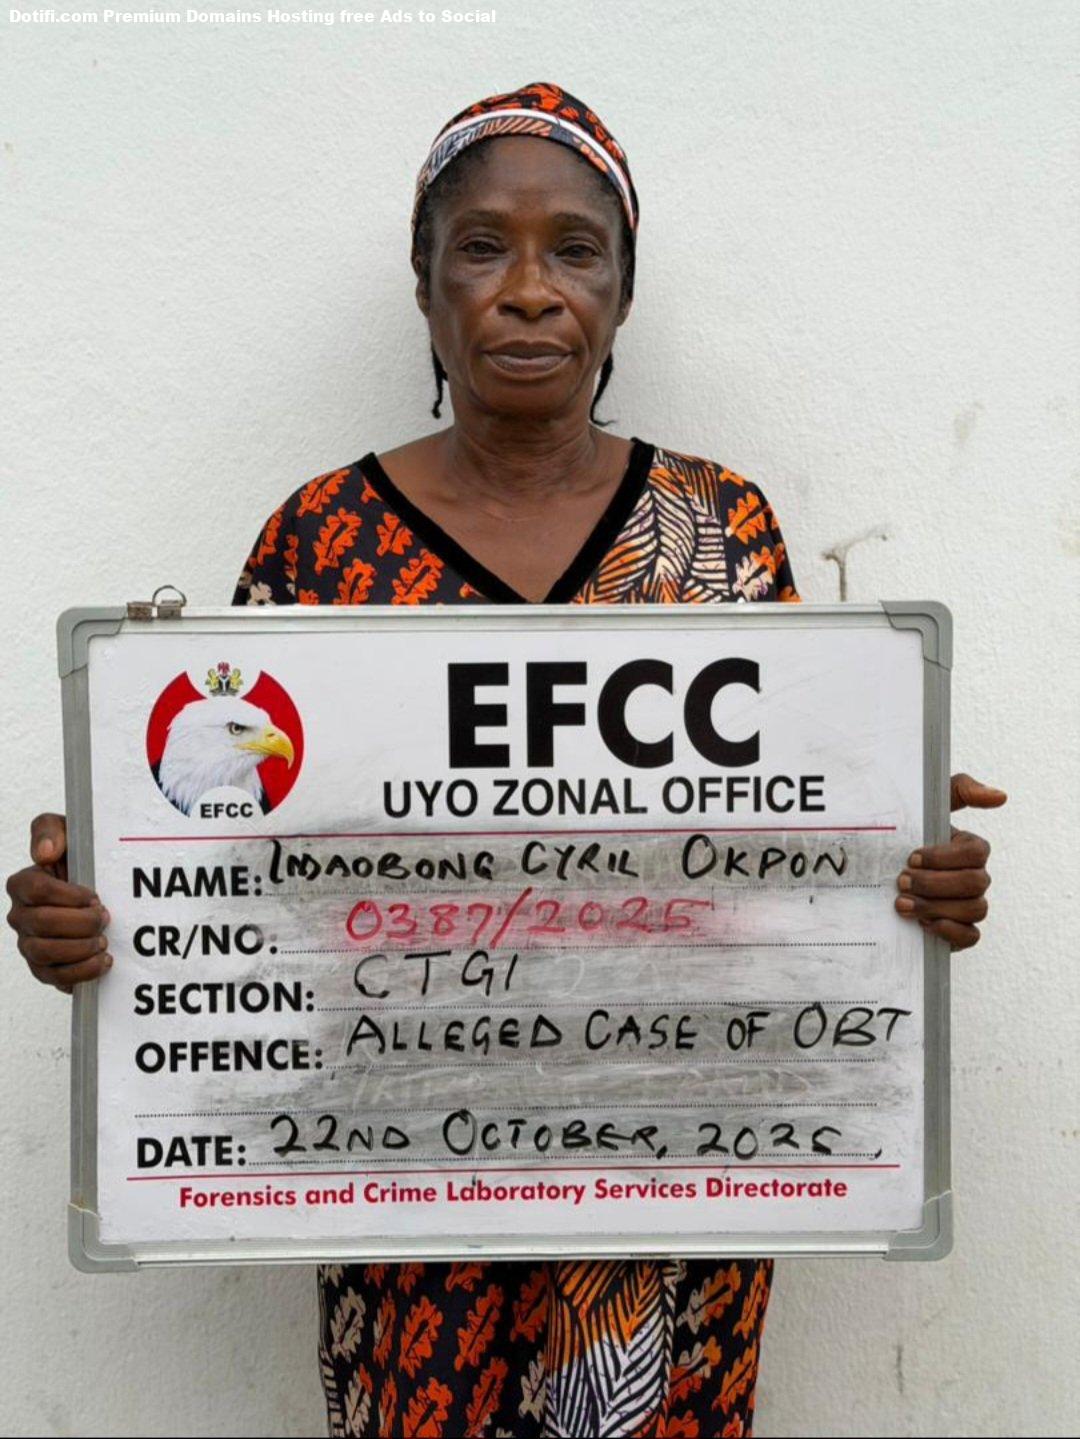 Dotifi.com Premium Domains Hosting free Ads to Social
EFCC
UYO ZONAL OFFICE
EFCC
NAME: IMAOBONG CYRIL OKPON
CR/NO: 0387/2025
SECTION: CTGI
OFFENCE: ALLEGED CASE OF OBT
DATE: 22ND OCTOBER, 2025,
Forensics and Crime Laboratory Services Directorate